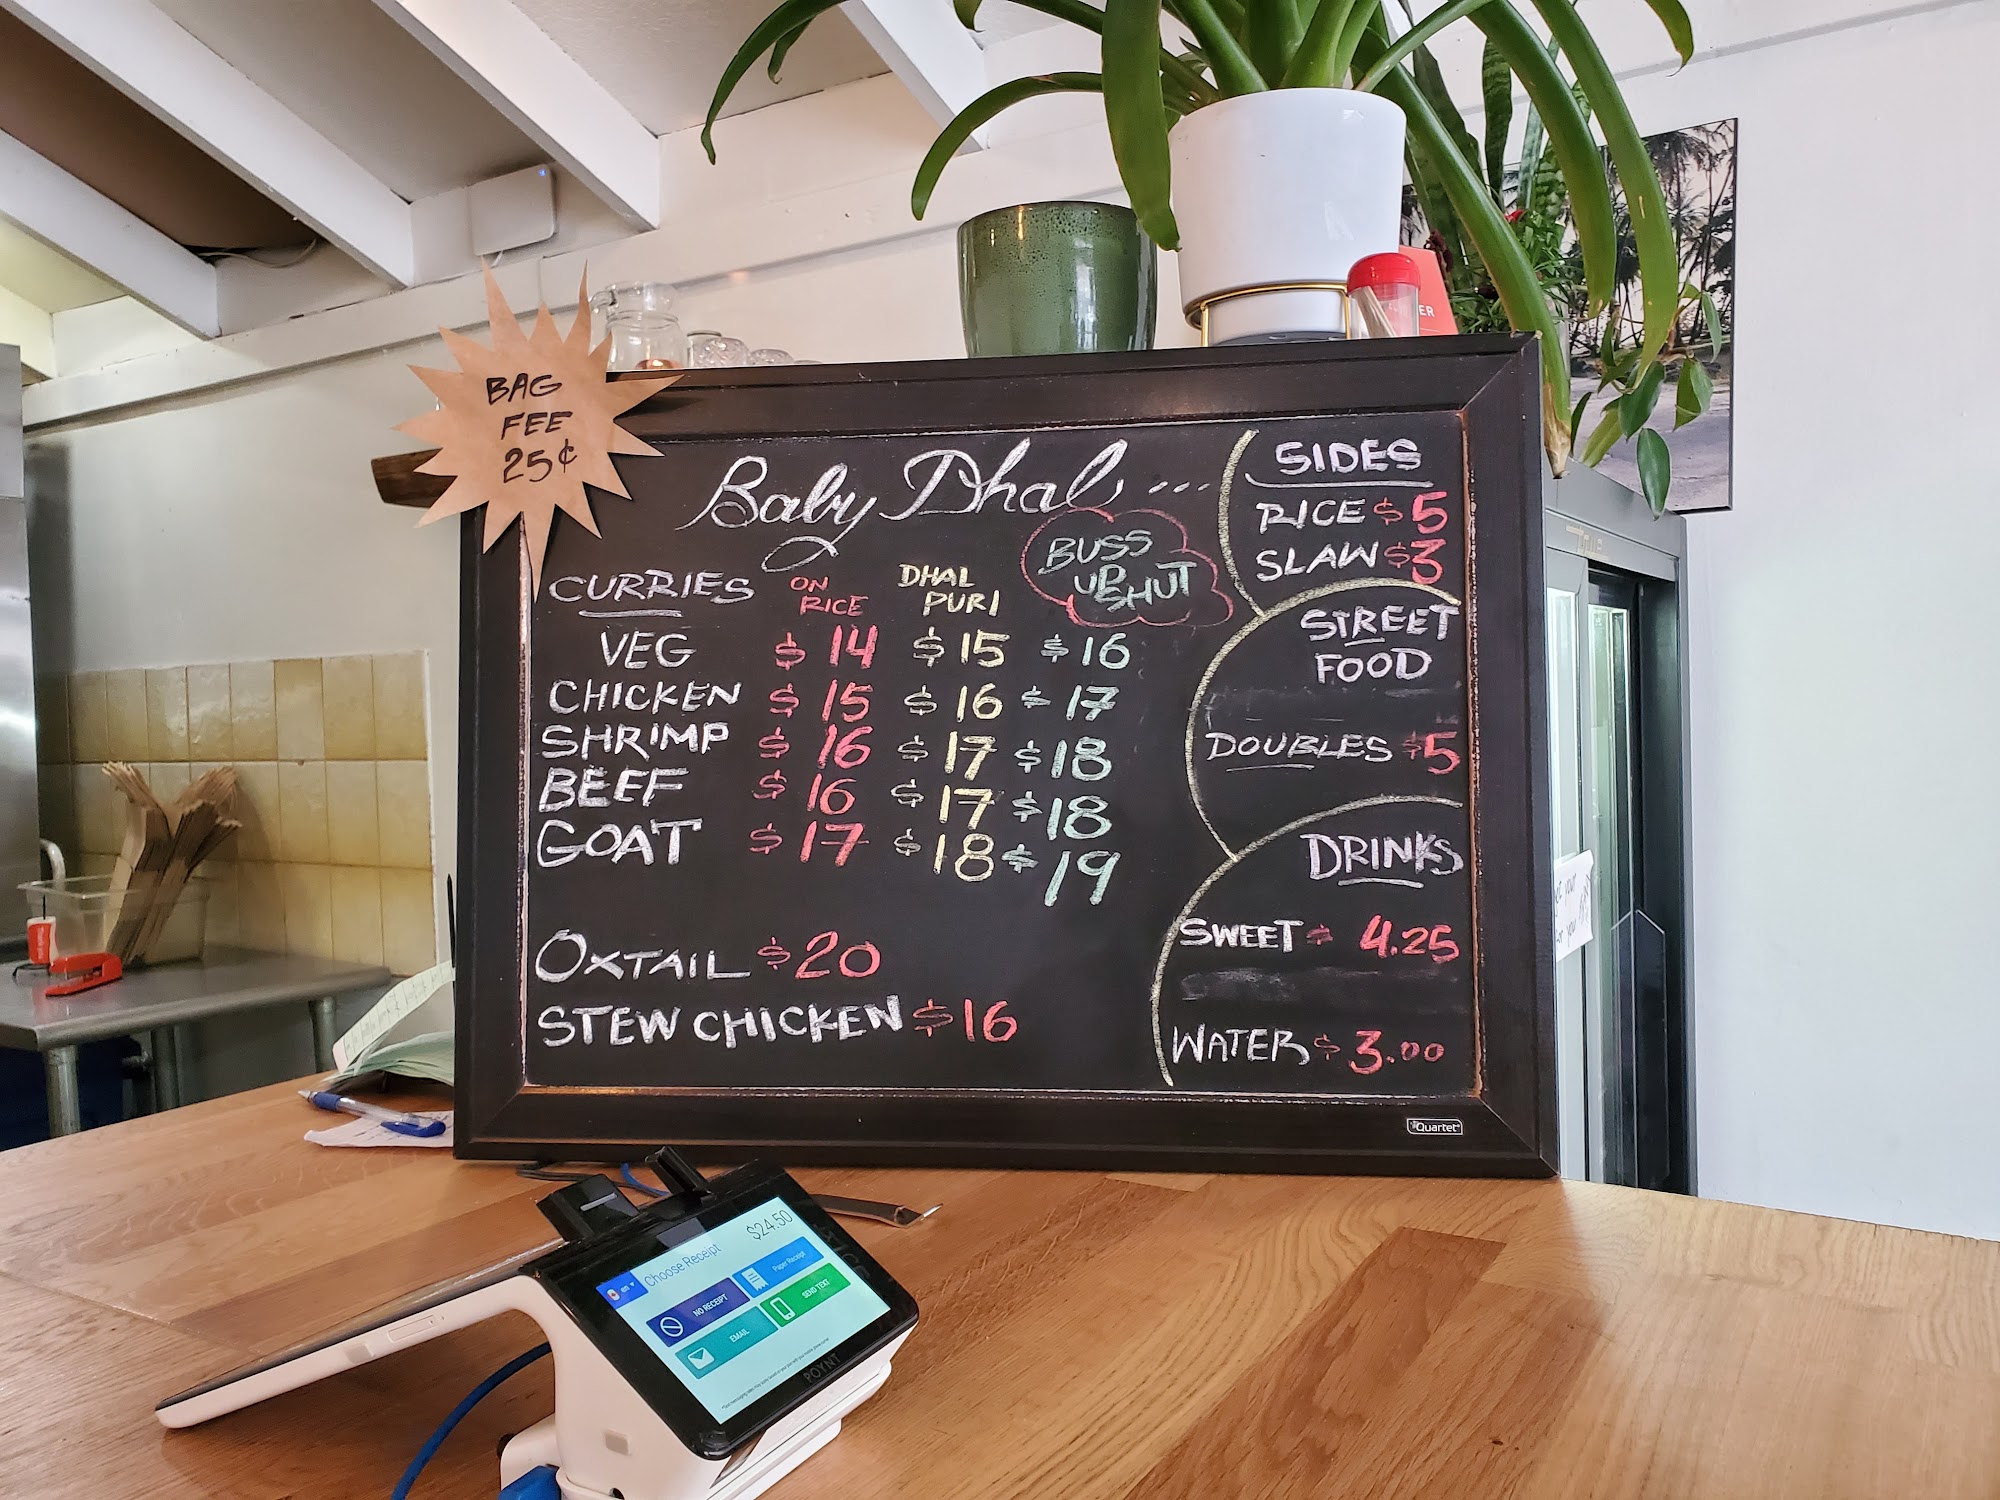 BAG
FEE
25¢
Baby Dhal...
CURRIES ON RICE DHAL PURI BUSS UP SHUT
VEG $14 $15 $16
CHICKEN $15 $16 $17
SHRIMP $16 $17 $18
BEEF $16 $17 $18
GOAT $17 $18 $19
OXTAIL $20
STEW CHICKEN $16
SIDES
RICE $5
SLAW $3
STREET
FOOD
DOUBLES $5
DRINKS
SWEET $4.25
WATER $3.00
Quartet
$24.50
en
Choose Receipt
NO RECEIPT
Paper Receipt
EMAIL
SEND TEXT
POYNT